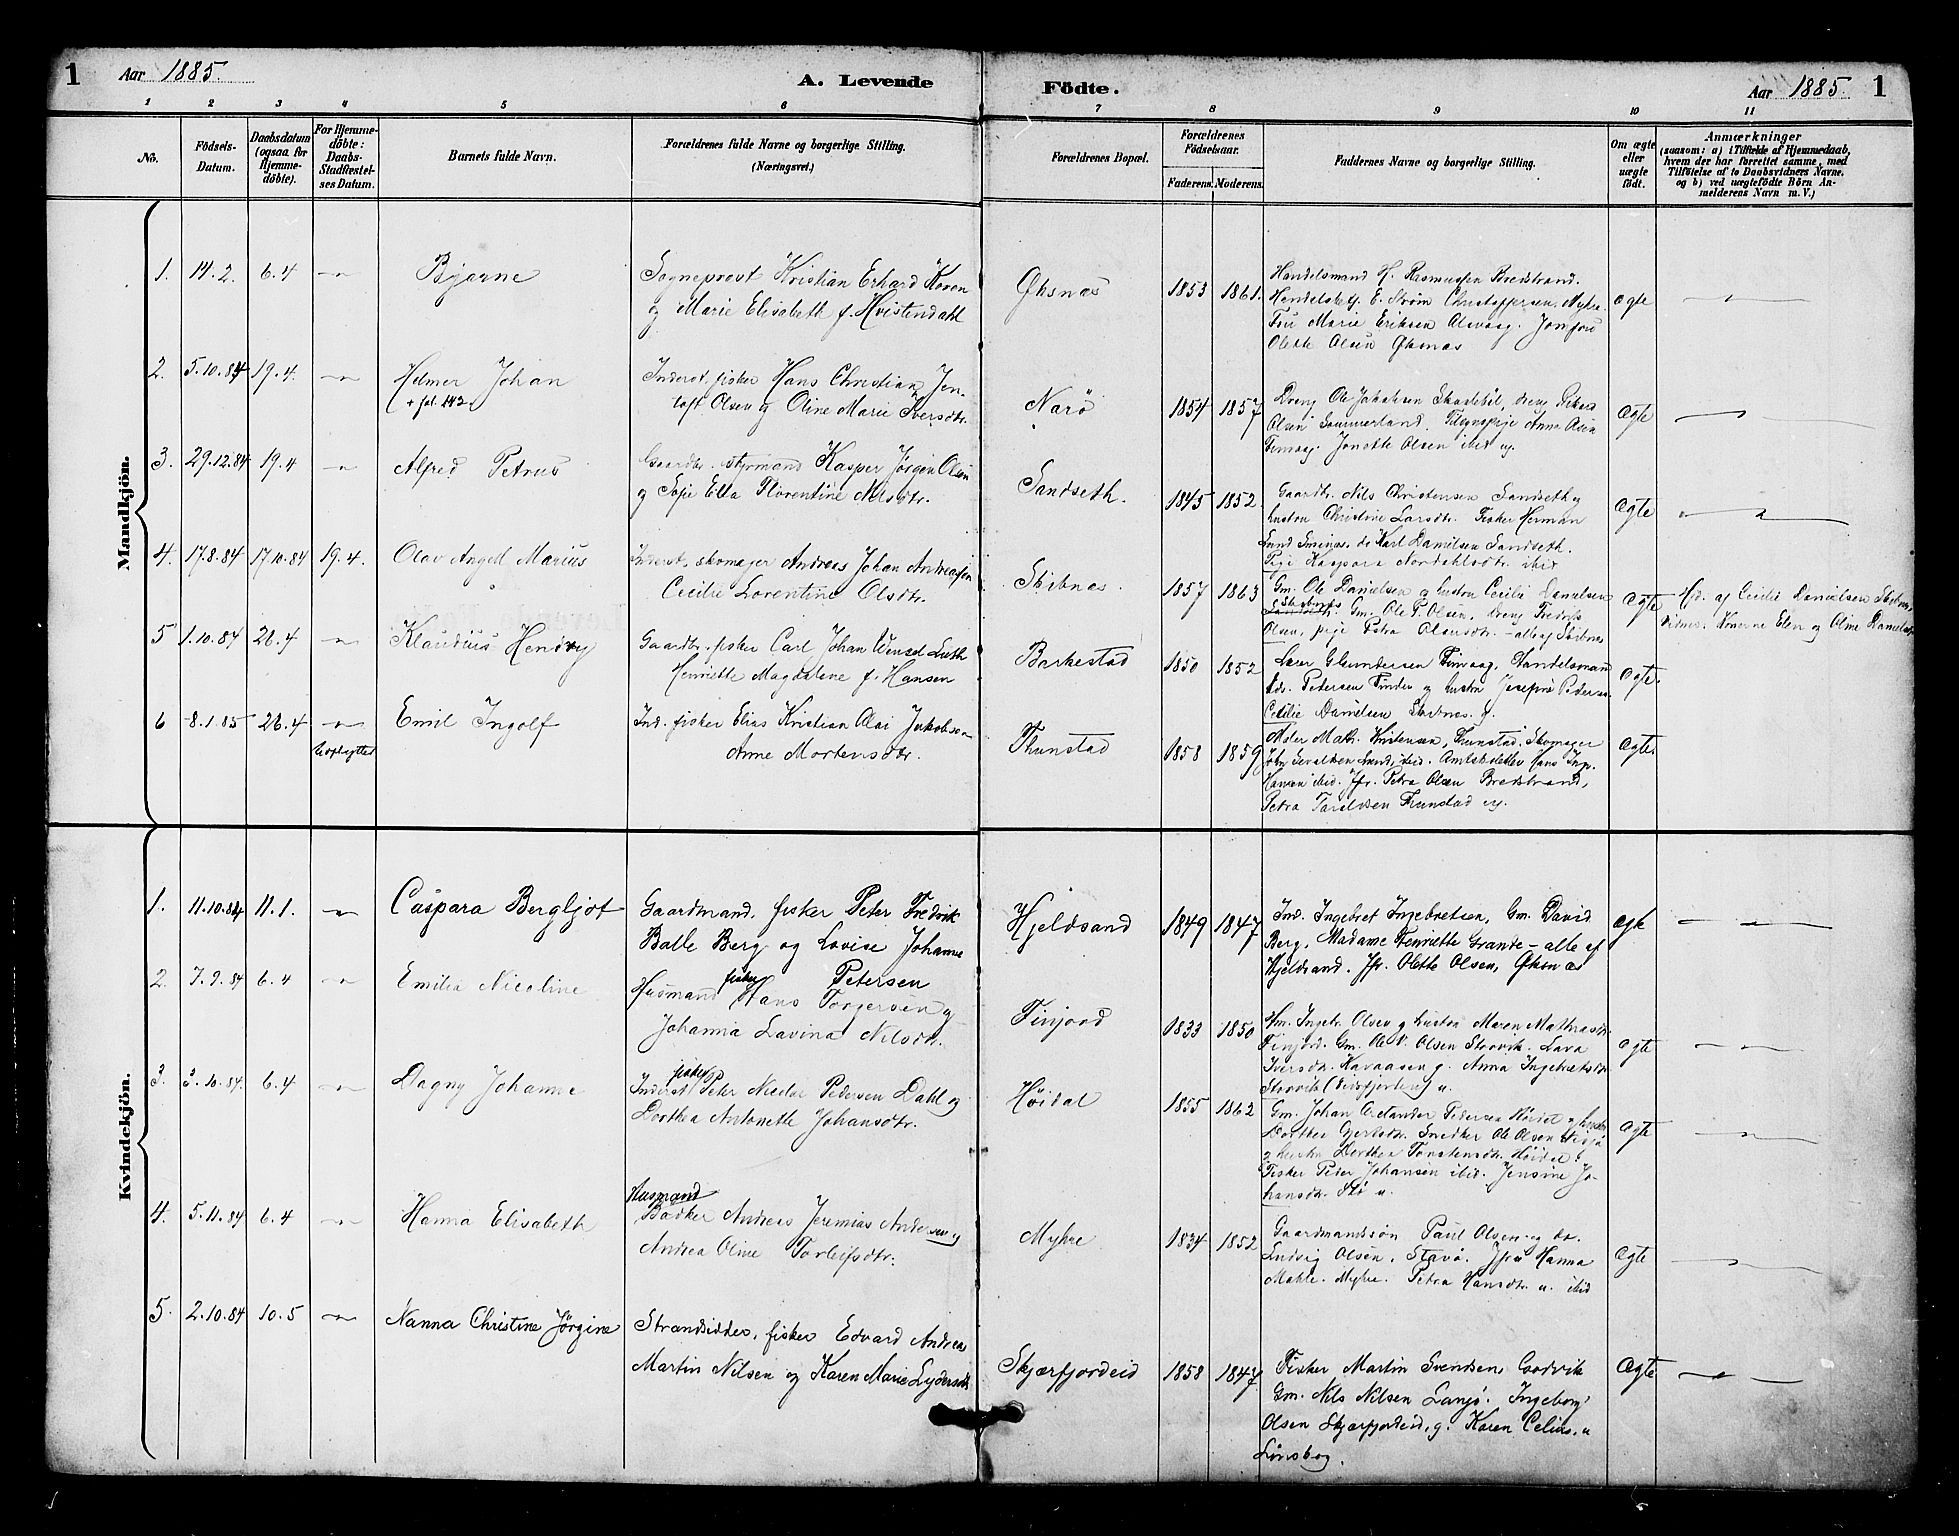 1 Aar 1885. A. Levende Födte. Aar 1885. 1
1 2 3 4 5 6 7 8 9 10 11
No.
Födsels-
Datum.
Daabsdatum
(ogsaa for
Hjemme-
döbte).
For Hjemme-
döbte:
Daabs-
Stadfæstel-
ses Datum.
Barnets fulde Navn.
Forældrenes fulde Navne og borgerlige Stilling.
(Næringsvei.)
Forældrenes Bopæl.
Forældrenes
Födselsaar.
Faderens. Moderens.
Faddernes Navne og borgerlige Stilling.
Om ægte
eller
uægte
födt.
Anmærkninger
(saasom: a) i Tilfælde af Hjemmedaab,
hvem der har forrettet samme, med
Tilföielse af to Daabsvidners Navne.
og b) ved uægtefödte Börn An-
melderens Navn m. V.)
Mandkjön.
1. 14.2. 6.4 Bjarne
Sogneprest Kristian Erhard Koren
og Marie Elisabeth f. Hvistendahl
Øksnæs 1853 1861.
Handelsmand H. Rasmussen Bredstrand.
Handelsbetj. E. Strøm Christoffersen, Myhre.
Fru Marie Eriksen Alsvaag. Jomfru
Olette Olsen Øksnæs
ægte
2. 5.10.84 19.4. Helmer Johan
+ fol. 142
Inderst, fisker Hans Christian Jen-
toft Olsen og Oline Marie Iversdtr.
Narø 1854 1857
Dreng Ole Jakobsen Skaelebøl, dreng
Olsen Sommerland. Anne Olsen
Jonette Olsen ibid ug.
Ægte
3. 29.12.84 19.4 Alfred Petrus
Gaardbr. styrmand Kasper Jørgen Olsen
og Sofie Ella Florentine Nilsdtr.
Sandseth. 1845 1852
Gaardbr. Nils Christensen Sandseth og
hustru Christine Larsdtr. Fisker Herman
Lund Smines, do Karl Danielsen Sandseth.
Pige Kaspara Nordahlsdtr ibid
Ægte
4. 17.8.84 17.10.84 19.4. Olav Angell Marius
Inderst, skomager Andreas Johan Andreassen
Cecilie Lorentine Olsdtr.
Skibnæs. 1857 1863
Gm. Ole Danielsen og hustru Cecilie Danielsen
Gm. Ole P. Olsen, dreng Fredrik
Olsen, pige Petra Olsensdtr. - alle af Skibnæs
Ægte
Hjd. af Cecilie Danielsen Skibnes,
Vidner: Konerne Elen og Oline Danielsen
5 1.10.84 26.4 Klaudius Hendry
Gaardbr. fisker Carl Johan Wensel Luth
Henriette Magdalene f. Hansen
Barkestad 1850 1852
Lærer Gundersen Finvaag, Handelsmand
Petersen Tinden og hustru Josefine Pedersen
Cecilie Danielsen Skibnæs. g.
Ægte.
6 8.1.85 26.4 Emil Ingolf
Ind. fisker Elias Kristian Olai Jakobsen
Anne Mortensdtr.
Thunstad 1858 1859
Math. Kristensen, Tunstad. Skomager
Hansen ibid. Jfr. Petra Olsen Bredstrand,
Petra Tunstad ug.
Ægte.
Kvindekjön.
1. 11.10.84 11.1. Caspara Bergljot
Gaardmand, fisker Peter Fredrik
Balle Berg og Lovise Johanne
Petersen
Hjeldsand 1849 1847
Ind. Ingebret Ingebretsen, Gm. David
Berg, Madame Henriette Grande - alle af
Hjeldsand. Jfr. Olette Olsen, Øksnæs
Ægte
2. 7.9.84 6.4 Emilia Nicoline
Husmand fisker Hans Torgersen og
Johanna Lavina Nilsdtr.
Finjord 1833 1850
Hm. Ingebr. Olsen og hustru Maren Mathiasdtr
Finjord. Gm. Ole N. Olsen Storvik. Lava
Iversdtr. Kavaasen g. Anna Ingebretsdtr
Storvik (Eidsfjorden) u.
Ægte
3. 3.10.84. 6.4 Dagny Johanne
Inderst fisker Peter Nicolai Pedersen Dahl og
Dorthea Antonette Johansdtr.
Høidal 1855 1862
Gm. Johan Pedersen Høidal og hustru
Dorthea Snedker Ole Olsen
og hustru Dorthea Torstensdtr. Høidal.
Fisker Peter Johansen ibid. Jensine Jo-
hansdtr. Stø u.
Ægte
4. 5.11.84 6.4 Hanna Elisabeth
Husmand
Bødker Andreas Jeremias Andersen og
Andrea Oline Torleifsdtr.
Myhre 1834 1852
Gaardmandssøn Paul Olsen og do.
Ludvig Olsen, Stavø. Jfr. Hanna
Mahle. Myhre. Petra Hansdtr. u. ibid
Ægte
5. 2.10.84 10.5 Nanna Christine Jørgine
Strandsidder, fisker Edvard Andreas
Martin Nilsen og Karen Marie Lydersdtr
Skjærfjordeid 1858 1847
Fisker Martin Svendsen, Godvik
Gm. Nils Nilsen Langø. Ingeborg
Olsen Skjærfjordeid, g. Karen Celius. u
Lonskog.
Ægte